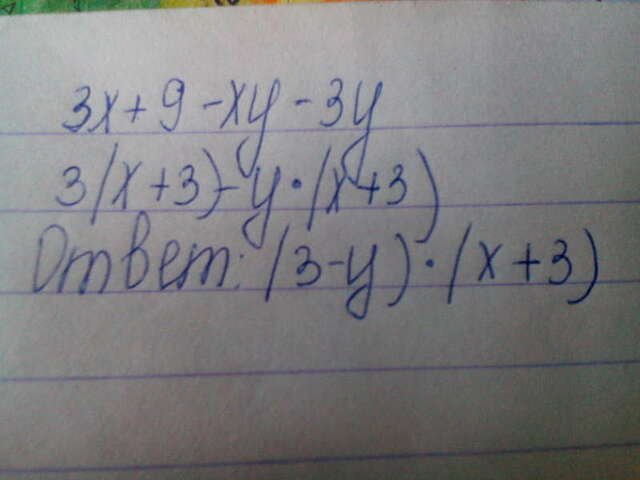 3x+9-xy-3y
3(x+3)-y·(x+3)
Ответ: (3-y)·(x+3)